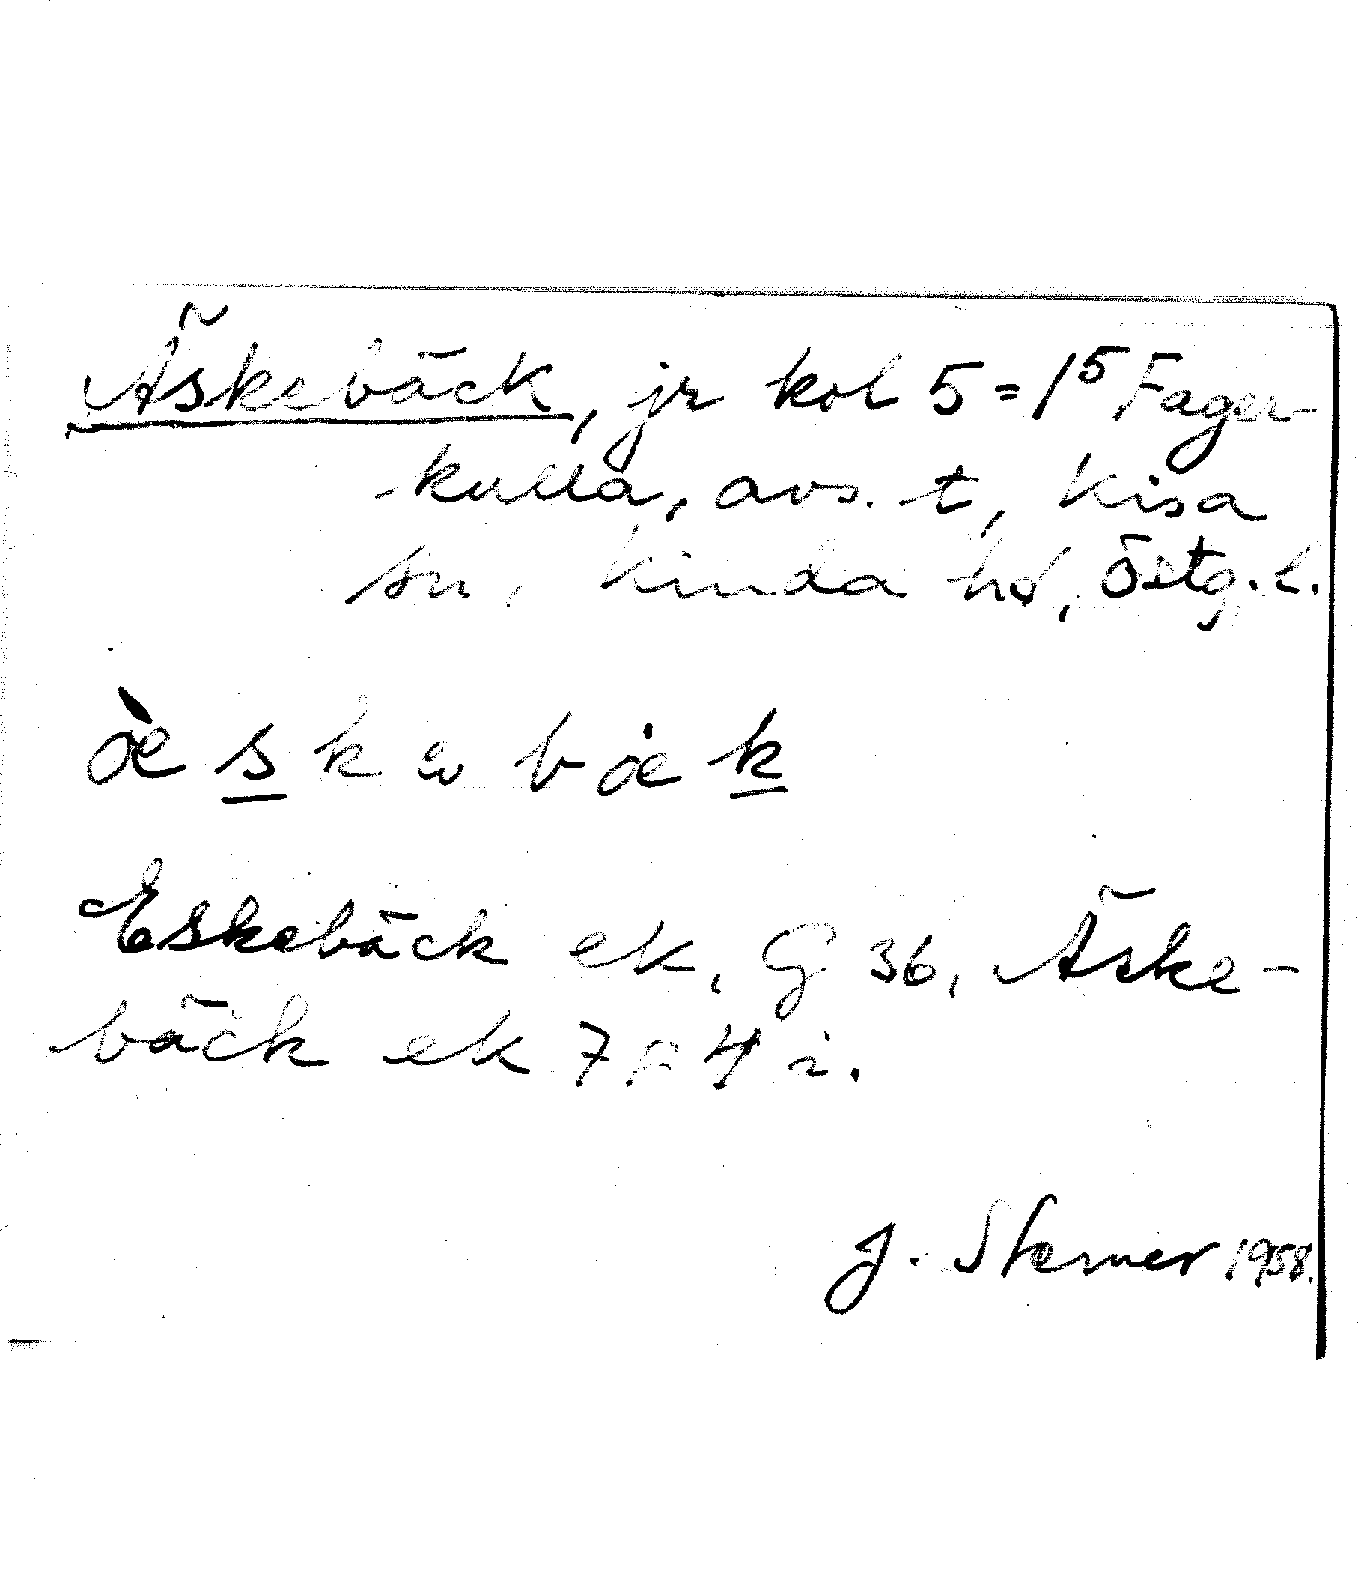 Äskebäck, jr kol 5 = 1⁵ Fager-
kulla, avs. t, Kisa
sn, Kinda hd, Östg. l.
æ̀ s̲ k ə b æ̇ k̲
Eskebäck ek, G 36, Äske-
bäck ek 7 4 i.
J. Sterner 1958.